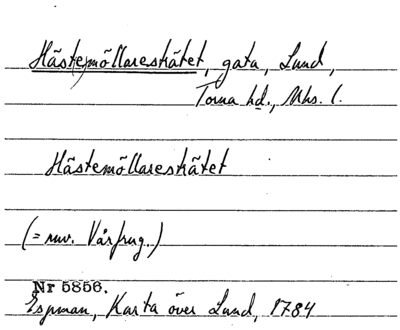 Hästemöllarestätet, gata, Lund,
Torna hd., Mhs. l.
Hästemöllarestätet
(= nuv. Vårfrug.)
Nr 5856.
Espman, Karta över Lund, 1784